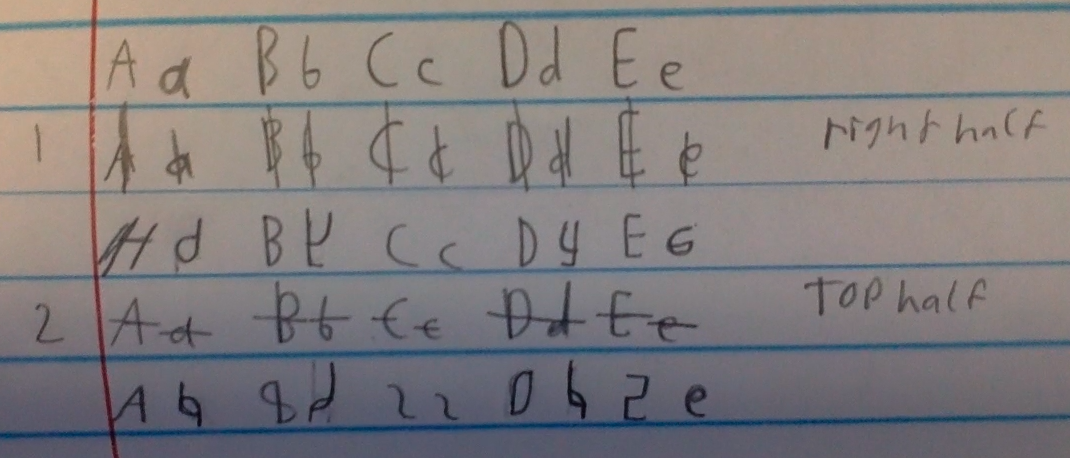 A a B b C c D d E e
1 A a B b C c D d E e right half
H d B y C c D y E G
2 A a B b C c D d E e Top half
A h 8 d 2 2 D h 2 e